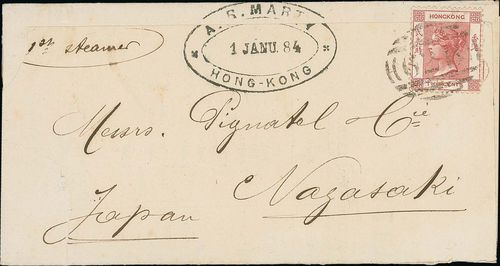 1st steamer
A. R. MARTY
1 JANU. 84
HONG-KONG
HONGKONG
TWO CENTS
Messrs. Pignatel & Cie
Nagasaki
Japan